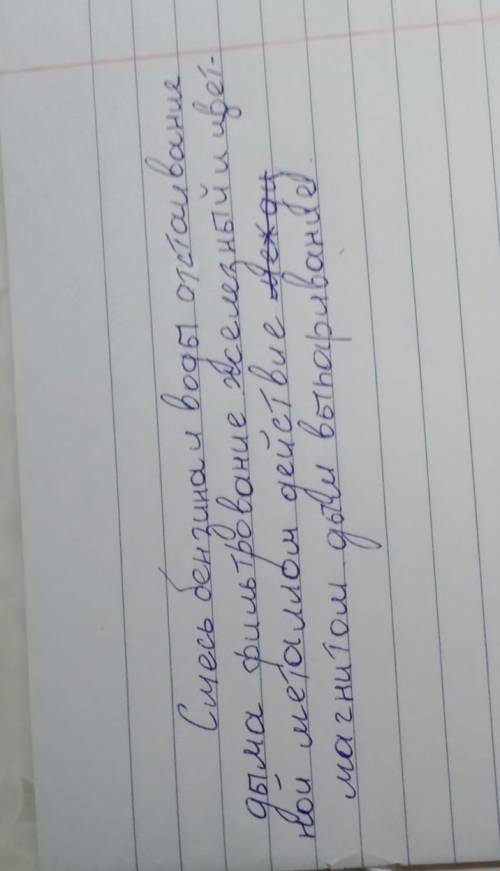 Смесь бензина и воды отстаивание
дыма фильтрование железный и цвет-
ной металлом действие
магнитом дым выпаривание.